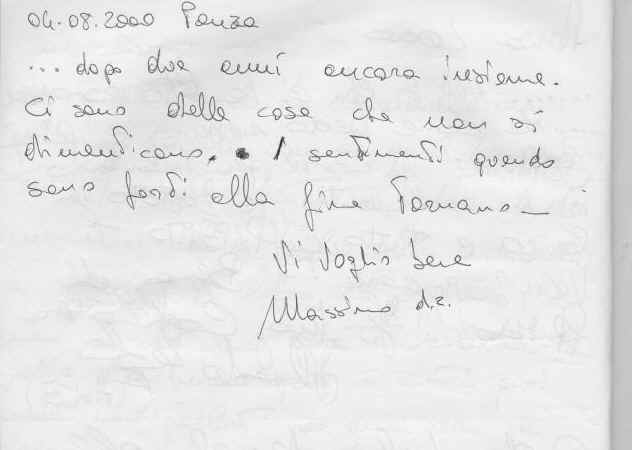 04.08.2000 Ponza
... dopo due anni ancora insieme.
Ci sono delle cose che non si
dimenticano. I sentimenti quando
sono forti alla fine tornano_
Vi voglio bene
Massimo d.z.